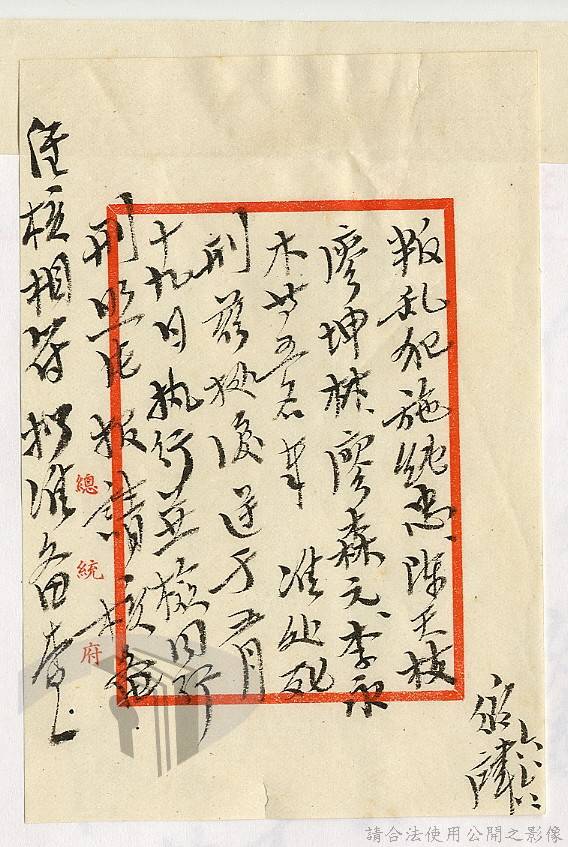 叛乱犯施純忠、陳天枝
廖坤林、廖森元、李永
木等五名 准处死
刑茲據復遵于五月
十九日执行並檢同行
刑照片报請核备
經核相符拟准备查
總統府
請合法使用公開之影像